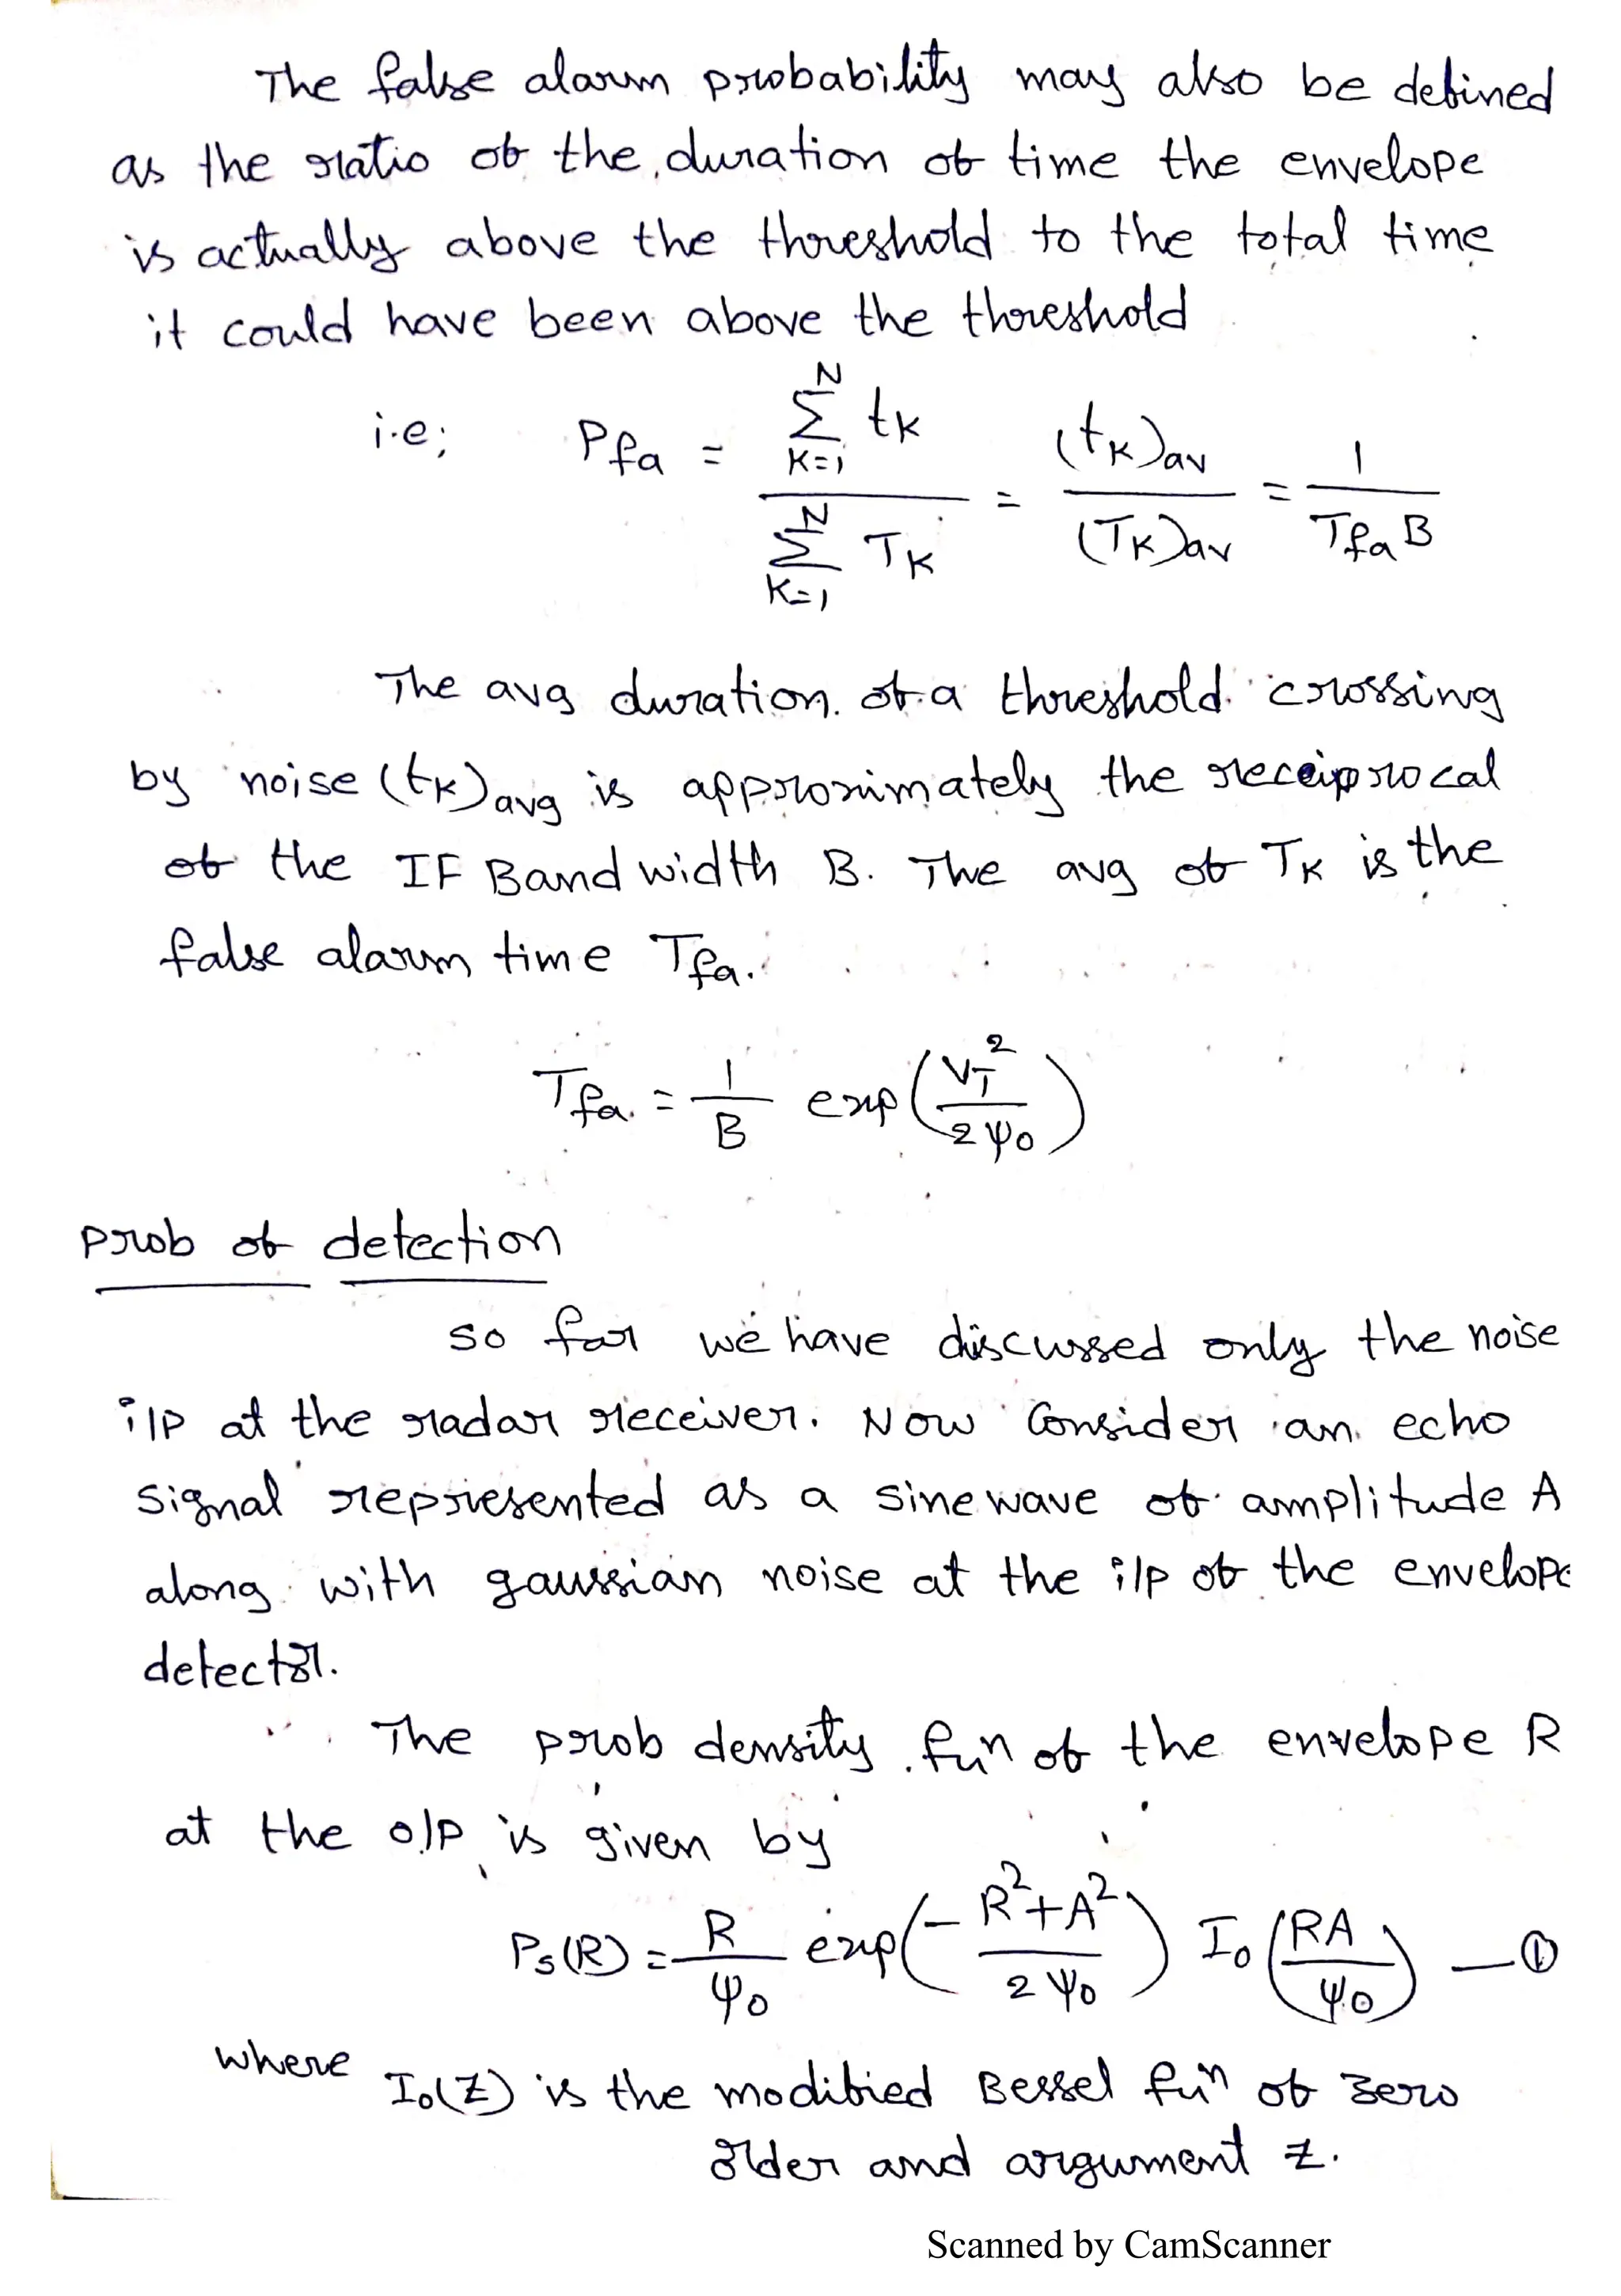 The false alarm probability may also be defined
as the ratio of the duration of time the envelope
is actually above the threshold to the total time
it could have been above the threshold
i.e; P_fa = \frac{\sum_{K=1}^{N} t_K}{\sum_{K=1}^{N} T_K} = \frac{(t_K)_{av}}{(T_K)_{av}} = \frac{1}{T_{fa} B}
The avg duration of a threshold crossing
by noise (t_K)_{avg} is approximately the receiprocal
of the IF Band width B. The avg of T_K is the
false alarm time T_{fa}.
T_{fa} = \frac{1}{B} exp(\frac{V_T^2}{2ψ_0})
Prob of detection
so far we have discussed only the noise
i/p at the radar receiver. Now Consider an echo
signal represented as a sinewave of amplitude A
along with gaussian noise at the i/p of the envelope
detector.
The prob density fun of the envelope R
at the o/p is given by
P_s(R) = \frac{R}{ψ_0} exp(-\frac{R^2+A^2}{2ψ_0}) I_0(\frac{RA}{ψ_0}) —①
where I_0(Z) is the modified Bessel fun of zero
order and argument z.
Scanned by CamScanner